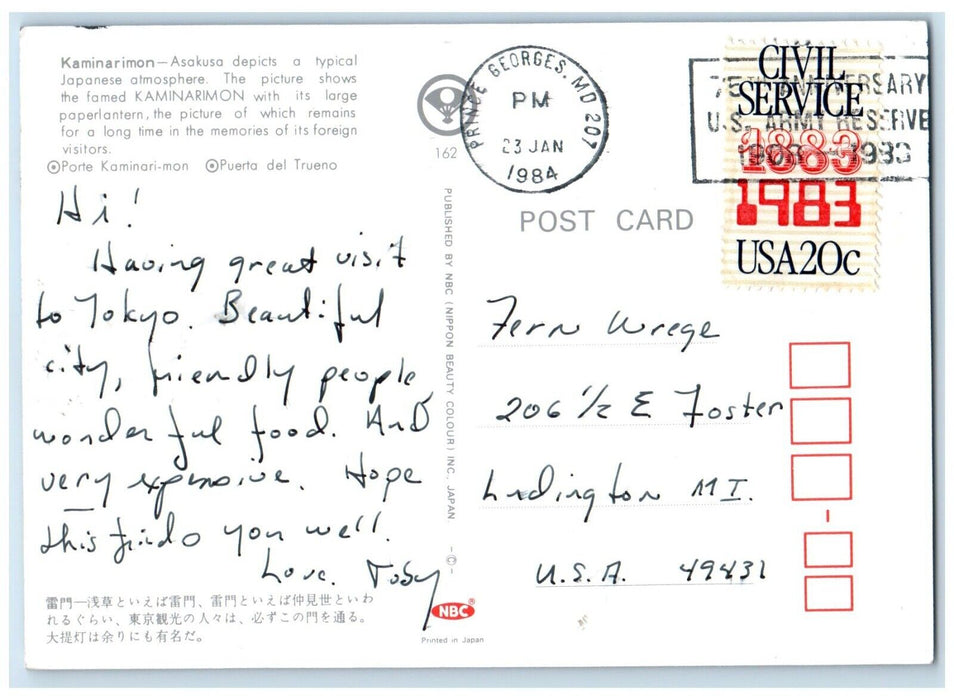 Kaminarimon—Asakusa depicts a typical
Japanese atmosphere. The picture shows
the famed KAMINARIMON with its large
paperlantern, the picture of which remains
for a long time in the memories of its foreign
visitors.
Porte Kaminari-mon Puerta del Trueno
162
Hi!
Having great visit
to Tokyo. Beautiful
city, friendly people,
wonderful food. And
very expensive. Hope
this finds you well.
Love. Toby
雷門—浅草といえば雷門、雷門といえば仲見世といわ
れるぐらい、東京観光の人々は、必ずこの門を通る。
大提灯は余りにも有名だ。
PUBLISHED BY NBC (NIPPON BEAUTY COLOUR) INC., JAPAN
—©—
NBC®
Printed in Japan
PRINCE GEORGES, MD 207
PM
23 JAN
1984
75TH ANNIVERSARY
U.S. ARMY RESERVE
1908 - 1983
CIVIL
SERVICE
1883
1983
USA20c
POST CARD
Fern Wrege
206 1/2 E Foster
Ludington MI.
U.S.A. 49431